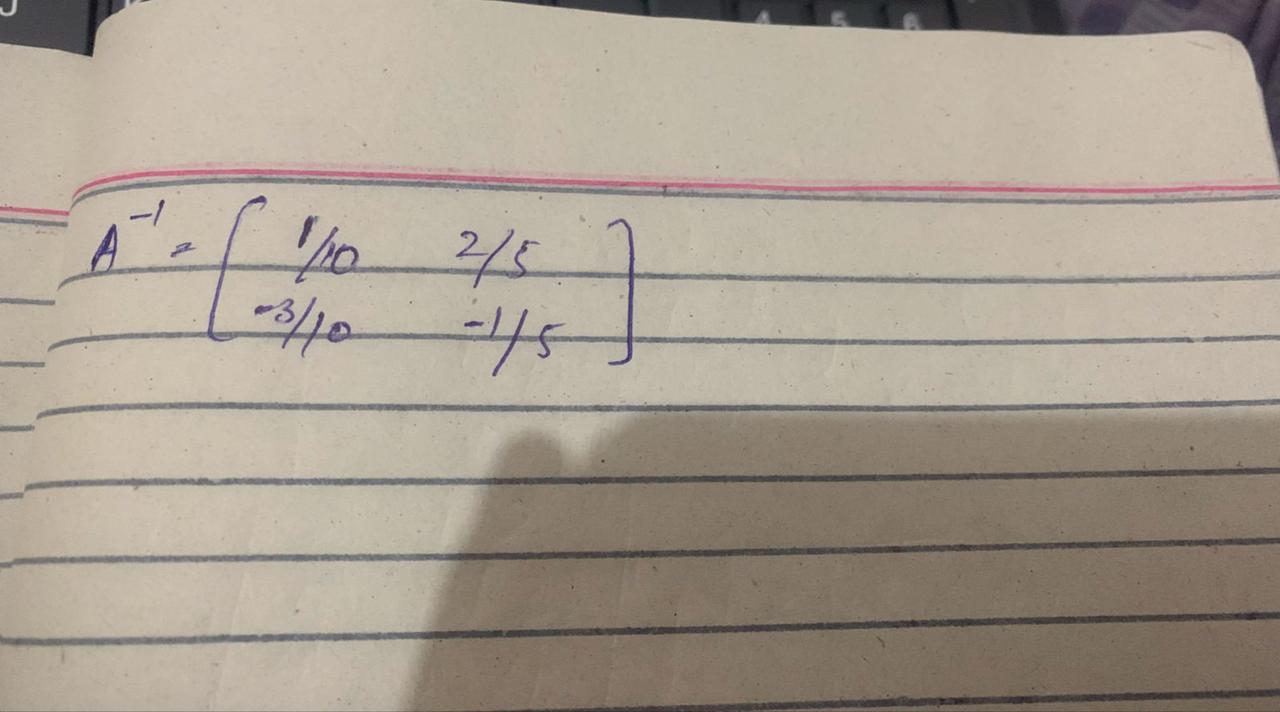 A⁻¹ = [ 1/10 2/5
-3/10 -1/5 ]